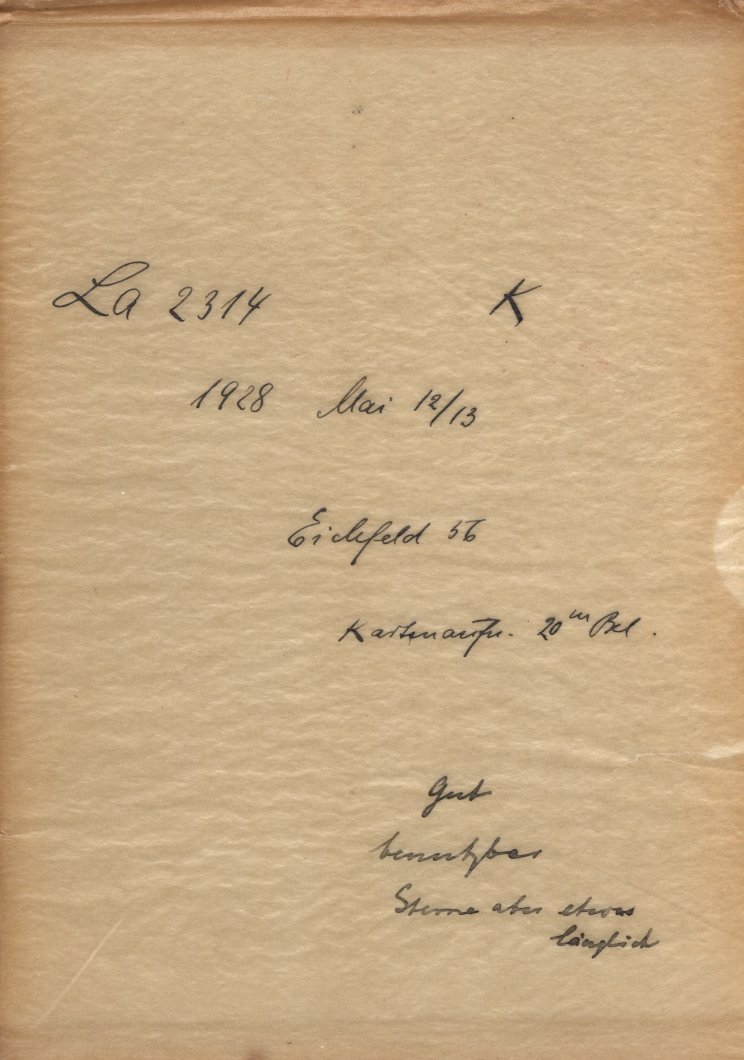 La 2314 K
1928 Mai 12/13
Eichfeld 56
Kartenaufn. 20ᵐ Bel.
Gut
benutzbar
Sterne aber etwas
länglich